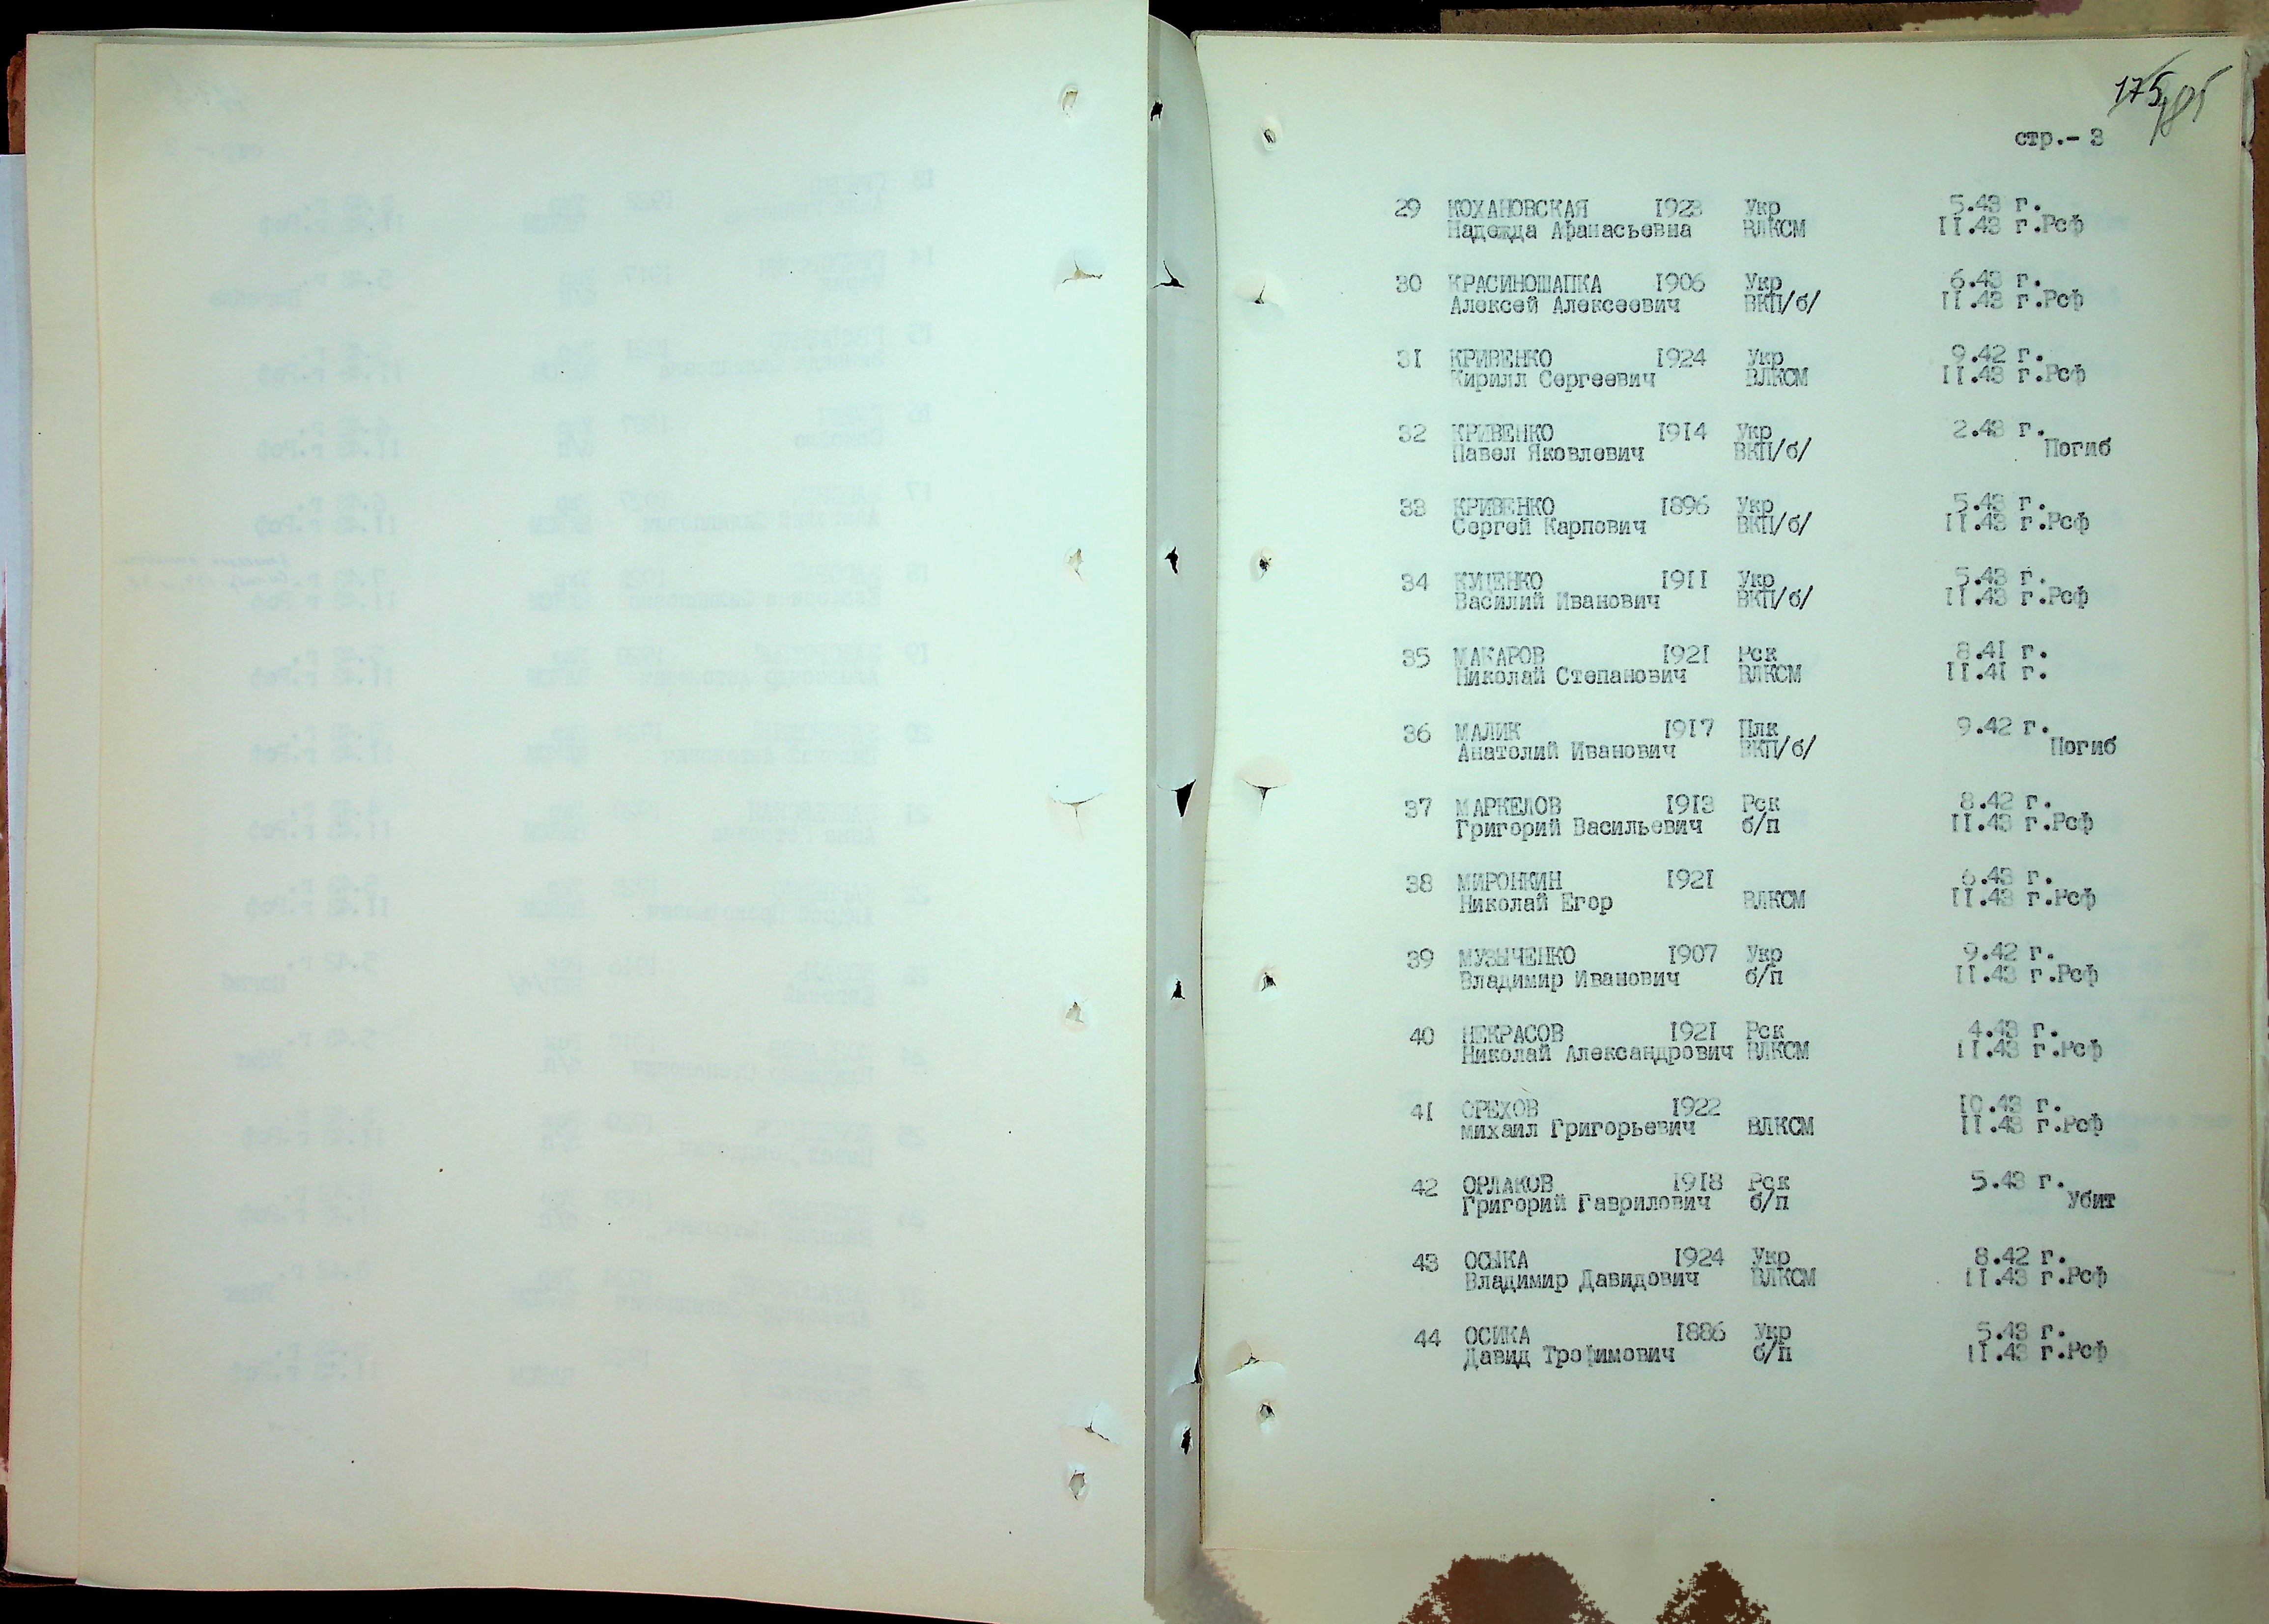 175
185
стр.- 3
29 КОХАНОВСКАЯ 1923 Укр 5.43 г.
Надежда Афанасьевна ВЛКСМ 11.43 г.Рсф
30 КРАСИНОШАПКА 1906 Укр 6.43 г.
Алексей Алексеевич ВКП/б/ 11.43 г.Рсф
31 КРИВЕНКО 1924 Укр 9.42 г.
Кирилл Сергеевич ВЛКСМ 11.43 г.Рсф
32 КРИВЕНКО 1914 Укр 2.43 г.
Павел Яковлевич ВКП/б/ Погиб
33 КРИВЕНКО 1896 Укр 5.43 г.
Сергей Карпович ВКП/б/ 11.43 г.Рсф
34 КУЦЕНКО 1911 Укр 5.43 г.
Василий Иванович ВКП/б/ 11.43 г.Рсф
35 МАКАРОВ 1921 Рск 8.41 г.
Николай Степанович ВЛКСМ 11.41 г.
36 МАЛИК 1917 Плк 9.42 г.
Анатолий Иванович ВКП/б/ Погиб
37 МАРКЕЛОВ 1913 Рск 8.42 г.
Григорий Васильевич б/п 11.43 г.Рсф
38 МИРОНКИН 1921 6.43 г.
Николай Егор ВЛКСМ 11.43 г.Рсф
39 МУЗЫЧЕНКО 1907 Укр 9.42 г.
Владимир Иванович б/п 11.43 г.Рсф
40 НЕКРАСОВ 1921 Рск 4.43 г.
Николай Александрович ВЛКСМ 11.43 г.Рсф
41 ОРЕХОВ 1922 10.43 г.
михаил Григорьевич ВЛКСМ 11.43 г.Рсф
42 ОРЛАКОВ 1918 Рск 5.43 г.
Григорий Гаврилович б/п Убит
43 ОСЫКА 1924 Укр 8.42 г.
Владимир Давидович ВЛКСМ 11.43 г.Рсф
44 ОСИКА 1886 Укр 5.43 г.
Давид Трофимович б/п 11.43 г.Рсф